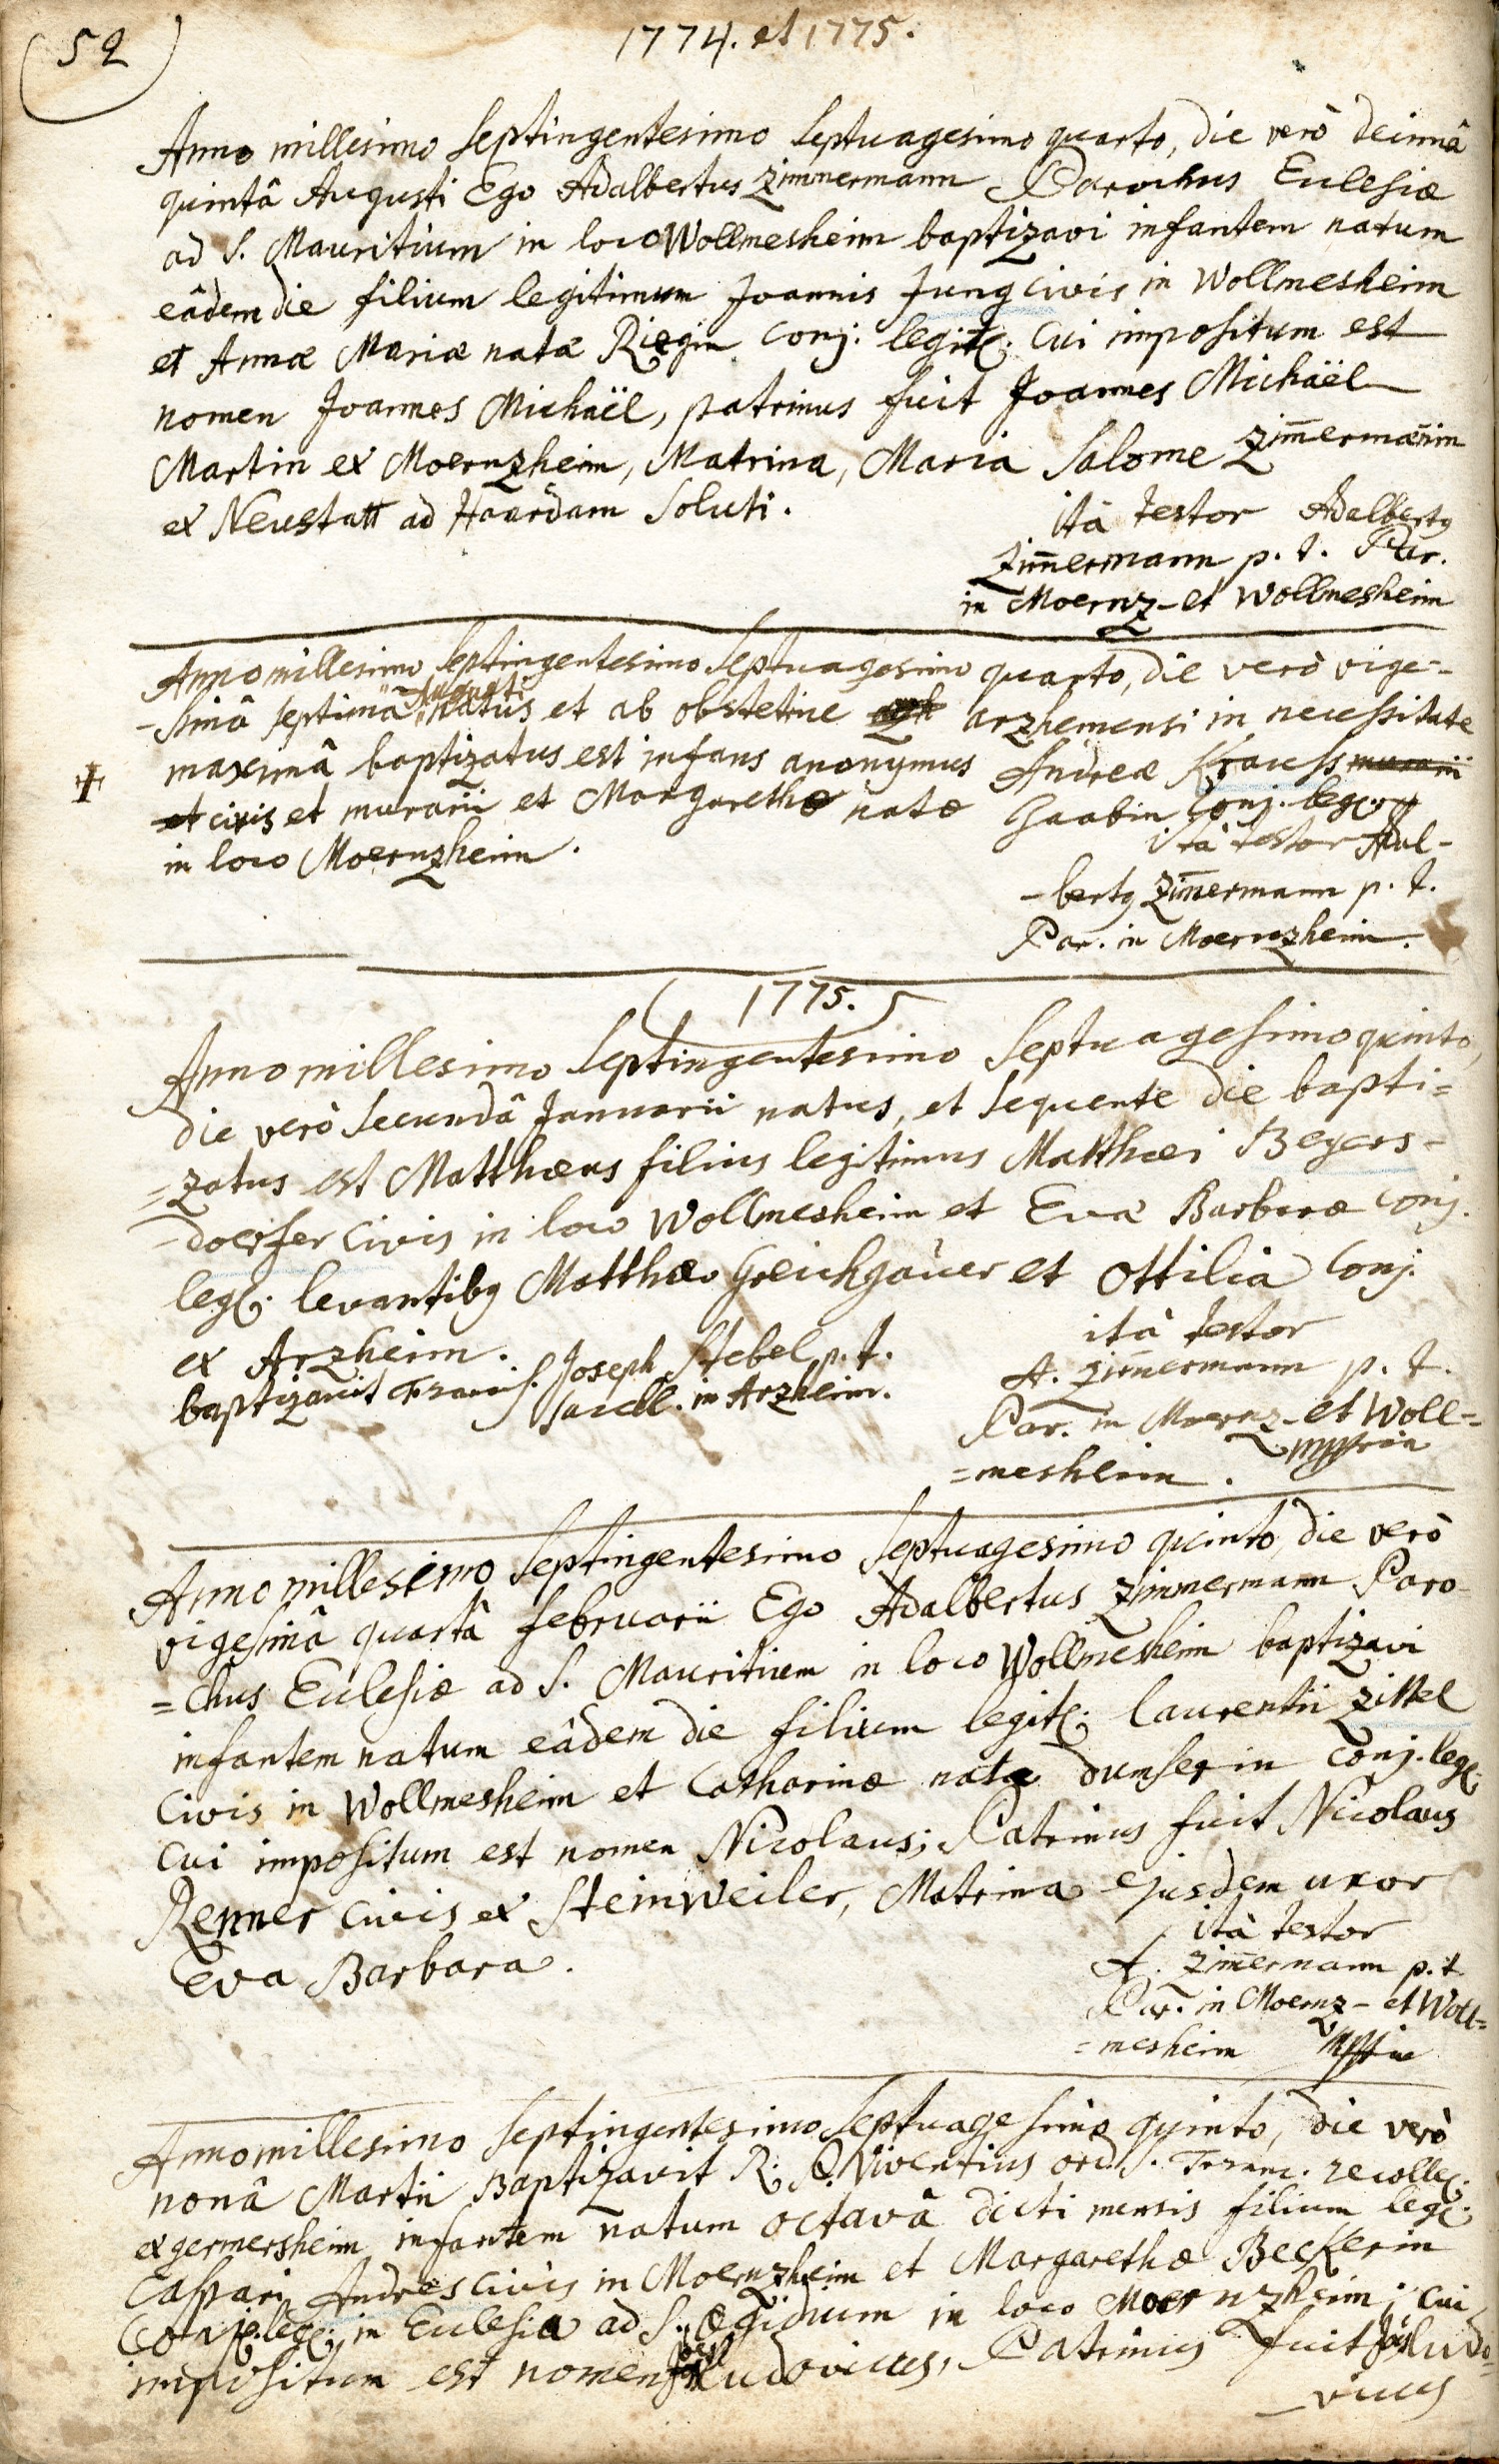 (52)
1774. et 1775.
Anno millesimo septingentesimo septuagesimo quarto, die verò decimâ
quintâ Augusti Ego Adalbertus Zimmermann Parochus Ecclesiæ
ad S. Mauritium in loco Wollmesheim baptizavi infantem natum
eâdem die filium legitimum Joannis Jung civis in Wollmesheim
et Annæ Mariæ natæ Riegin conj. legit. Cui impositum est
nomen Joannes Michaël, patrinus fuit Joannes Michaël
Martin ex Moernzheim, Matrina, Maria Salome Zim̄ermañin
ex Neustatt ad Haardam soluti.
ità testor Adalbertq
Zim̄ermann p. t. Par.
in Moernz- et Wollmesheim
Anno millesimo septingentesimo septuagesimo quarto, die verò vige=
-simâ septimâ Augusti natus et ab obstetrice arzhemensi in necessitate
maximâ baptizatus est infans anonymus Andreæ Krauss murarii
et civis et murarii et Margarethæ natæ Gaabin Conj. leg.
in loco Moernzheim.
ità testor Adal-
-bertq Zim̄ermann p. t.
Par. in Moernzheim.
(1775.)
Anno millesimo septingentesimo septuagesimo quinto,
die verò secundâ Januarii natus, et sequente die bapti=
=zatus est Matthæus filius legitimus Matthæi Beyers-
-doerfer civis in loco Wollmesheim et Evæ Barbaræ conj.
leg. levantibq Matthæo Greichgauer et Ottilia Conj.
ex Arzheim.
baptizavit Francis. Joseph Stebel p. t.
Sacell. in Arzheim.
ità testor
A. Zim̄ermann p. t.
Par. in Moernz- et Woll=
=mesheim. mppria
Anno millesimo septingentesimo septuagesimo quinto, die verò
vigesimâ quartâ februarii Ego Adalbertus Zimmermann Paro-
=chus Ecclesiæ ad S. Mauritium in loco Wollmesheim baptizavi
infantem natum eâdem die filium legit. Laurentii Zittel
Civis in Wollmesheim et Catharinæ natæ Dumserin conj. leg.
Cui impositum est nomen Nicolaus; Patrinus fuit Nicolaus
Renner civis ex Steinweiler, Matrina ejusdem uxor
Eva Barbara.
ità testor
A. Zim̄ermann p. t
Par. in Moernz- et Woll=
=mesheim mppria
Anno millesimo septingentesimo septuagesimo quinto, die verò
nonâ Martii Baptizavit R. P. Viventius ord. S. Franc. recoll.
ex germersheim infantem natum octavâ dicti mensis filium leg.
Caspari Andres civis in Moernzheim et Margarethæ Beckerin
Conj. leg. in Ecclesia ad S. Ægidium in loco Moernzheim; cui
impositum est nomen Ludovicus, Patrinus fuit Jōes Ludo=
-vicus